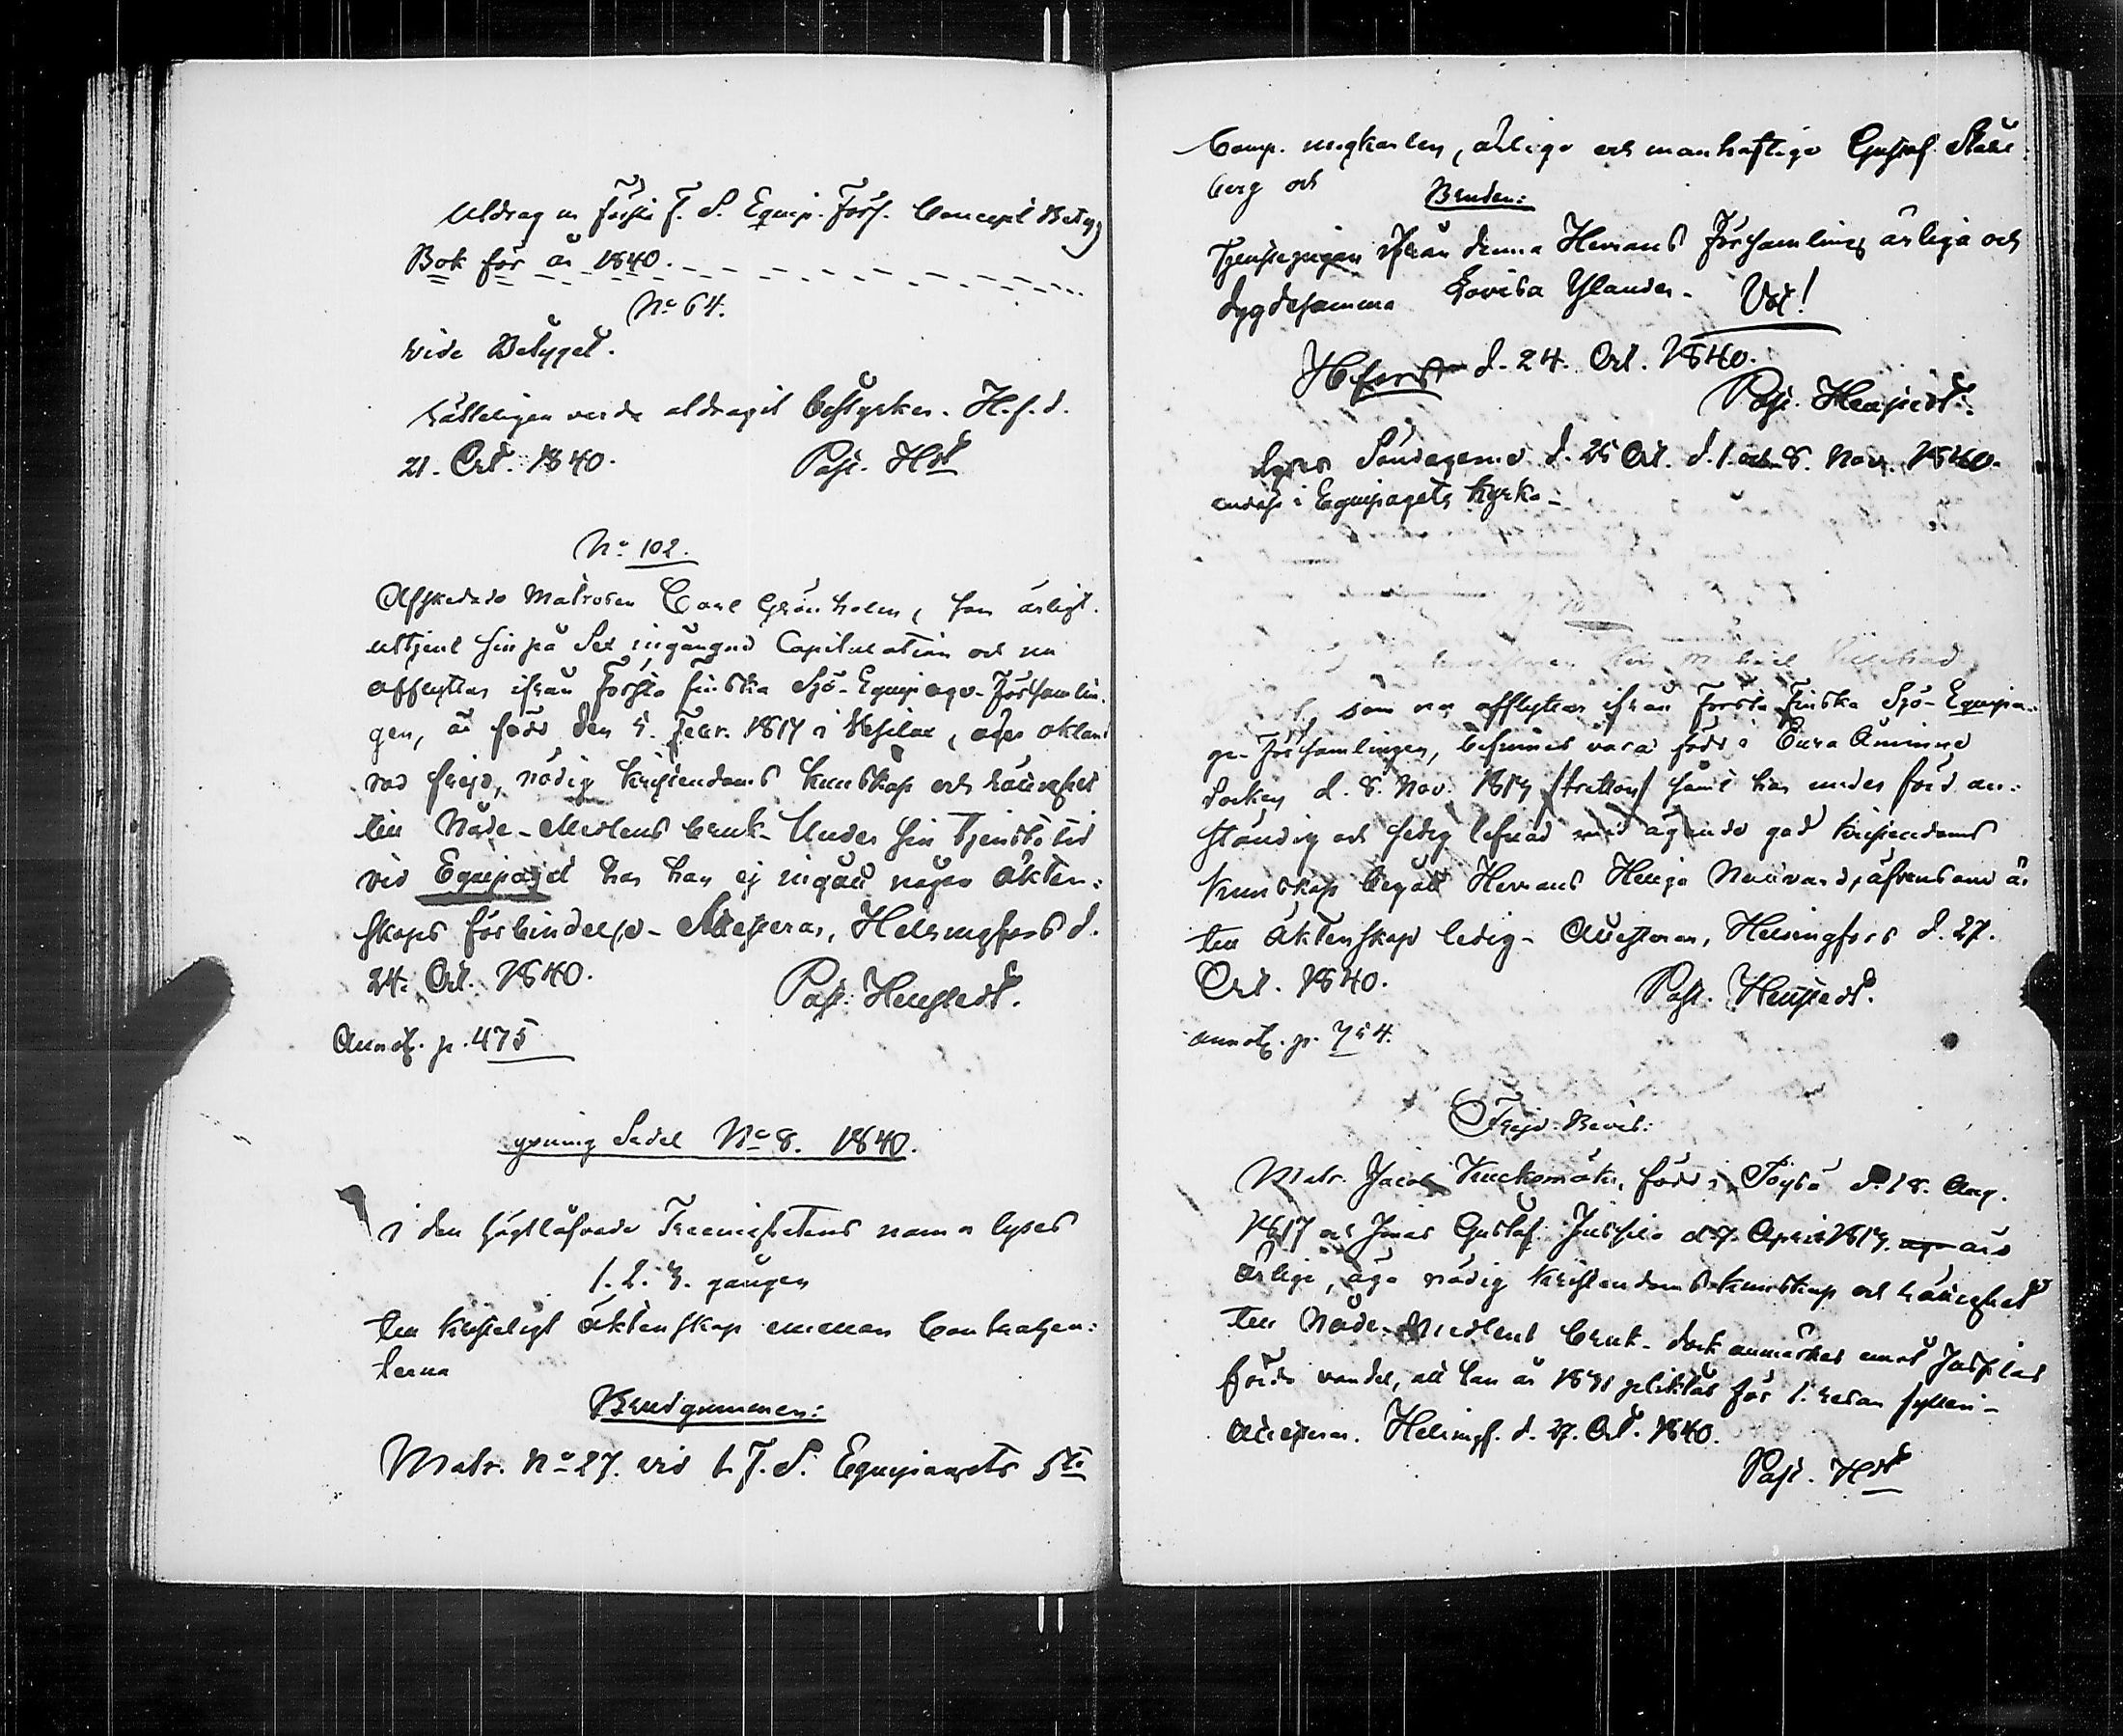 Utdrag ur första F. S. Equip. Förs. Concept Betyg
Bok för år 1840.
No 64.
vide Betyget.
rätteligen vara utdragit bestyrker. H.f. d.
21. Oct. 1840. Past. Hdt
No 102.
Afskedade Matrosen Carl Grönholm, som ärligt
uttjent sin på Sex ingångna Capitulation och nu
afflyttar ifrån Första Finska Sjö-Equipage-Församlin-
gen, är född den 5. Febr. 1817 i Vesilax, äger oklan-
rad frejd, nödig Kristendoms kunskap och rättighet
till Nåde-Medlens bruk. Under sin tjensts tid
vid Equipaget har han ej ingått någon Äkten-
skaps förbindelse. Attesteras, Helsingfors d.
24. Oct. 1840. Past. Henstedt.
Annot. p. 475
Lysning Sedel No 8. 1840.
I den Högtlofvade Treenighetens namn lyses
1. 2. 3. gången
till Kristeligt äktenskap emellan Contrahen-
terna
Brudgummen:
Matr. No 27. vid 1. F. S. Equipagets 5te
Comp. ungkarlen, ärlige och manhaftige Gustaf Stål-
berg och
Bruden:
Tjenstepigan ifrån denna Herrans Församling ärliga och
dygdesamma Lovisa Ylander. Vot!
Hfors d. 24. Oct. 1840.
Past. Henstedt.
Lyses Söndagarne d. 25 Oct. d. 1. och 8. Nov. 1840.
endast i Equipagets kyrka
Michael
som nu afflyttar ifrån Första Finska Sjö-Equipa-
ge-Församlingen, befinnes vara född i Eura Åminne
Socken d. 8. Nov. 1813 /tretton/ samt har under förd an-
ständig och sedig lefnad med ägande god kristendoms
kunskap begått Herrans Heliga Nattvard, äfvensom är
till Äktenskap ledig. Attesteras, Helsingfors d. 27.
Oct. 1840. Past. Henstedt.
annot. p. 754.
Frejd-Bevis:
Matr. Jacob Kuckomäki, född i Töysä d. 18. Aug.
1817 och Jonas Gustaf d. 7. April 1813. äga äro
ärlige, äga nödig Kristendoms kunskap och rättighet
till Nåde-Medlens bruk. dock anmärkes emot
förda vandel, att han år 1831 pliktat för 1. resan fylleri.
Attesteras. Helsingf. d. 27. Oct. 1840.
Past. Hdt